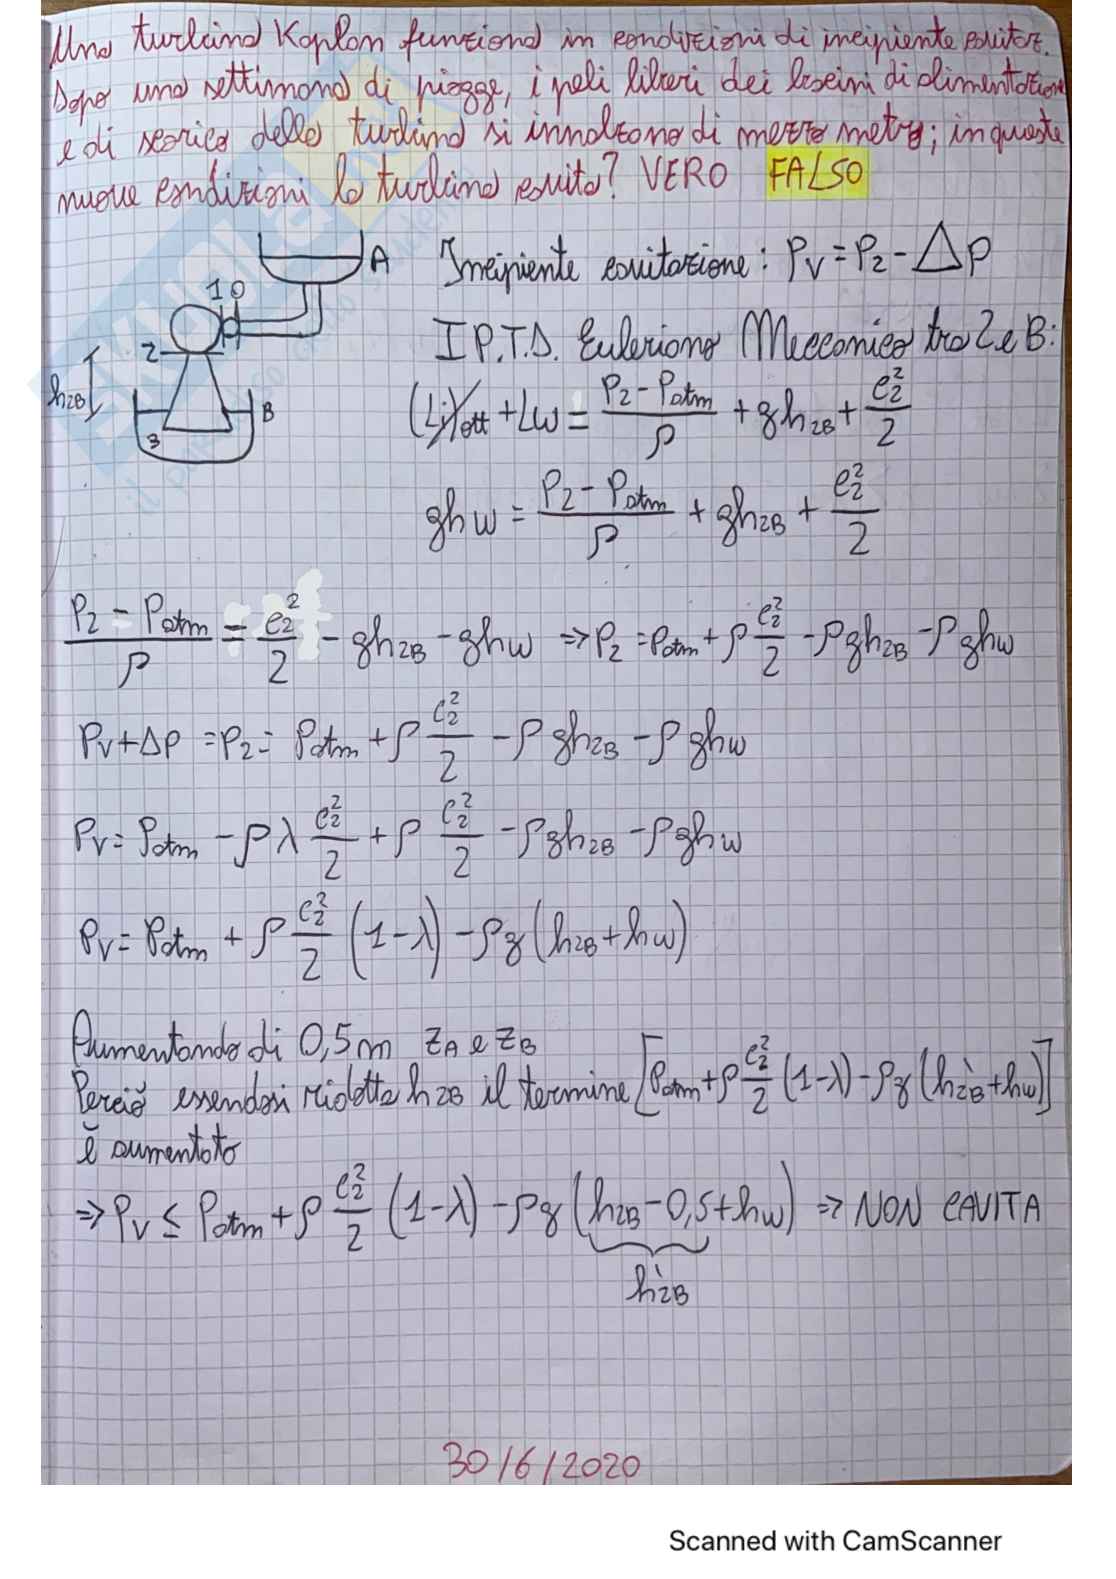 Una turbina Kaplan funziona in condizioni di incipiente cavitaz.
Dopo una settimana di piogge, i peli liberi dei bacini di alimentazione
e di scarico della turbina si innalzano di mezzo metro; in queste
nuove condizioni la turbina cavita? VERO FALSO
A
Incipiente cavitazione: Pv = P2 - Δp
1 0
2
h2B
B
3
I P.T.D. Euleriana Meccanica tra 2 e B:
(Li)att + Lw = (P2 - Patm)/ρ + gh2B + c2²/2
ghw = (P2 - Patm)/ρ + gh2B + c2²/2
(P2 - Patm)/ρ = c2²/2 - gh2B - ghw ⇒ P2 = Patm + ρ c2²/2 - ρgh2B - ρghw
Pv + Δp = P2 = Patm + ρ c2²/2 - ρgh2B - ρghw
Pv = Patm - ρλ c2²/2 + ρ c2²/2 - ρgh2B - ρghw
Pv = Patm + ρ c2²/2 (1-λ) - ρg(h2B + hw)
Aumentando di 0,5m zA e zB
Perciò essendosi ridotta h2B il termine [Patm + ρ c2²/2 (1-λ) - ρg(h'2B + hw)]
è aumentato
⇒ Pv ≤ Patm + ρ c2²/2 (1-λ) - ρg(h2B - 0,5 + hw) ⇒ NON CAVITA
h'2B
30/6/2020
Scanned with CamScanner